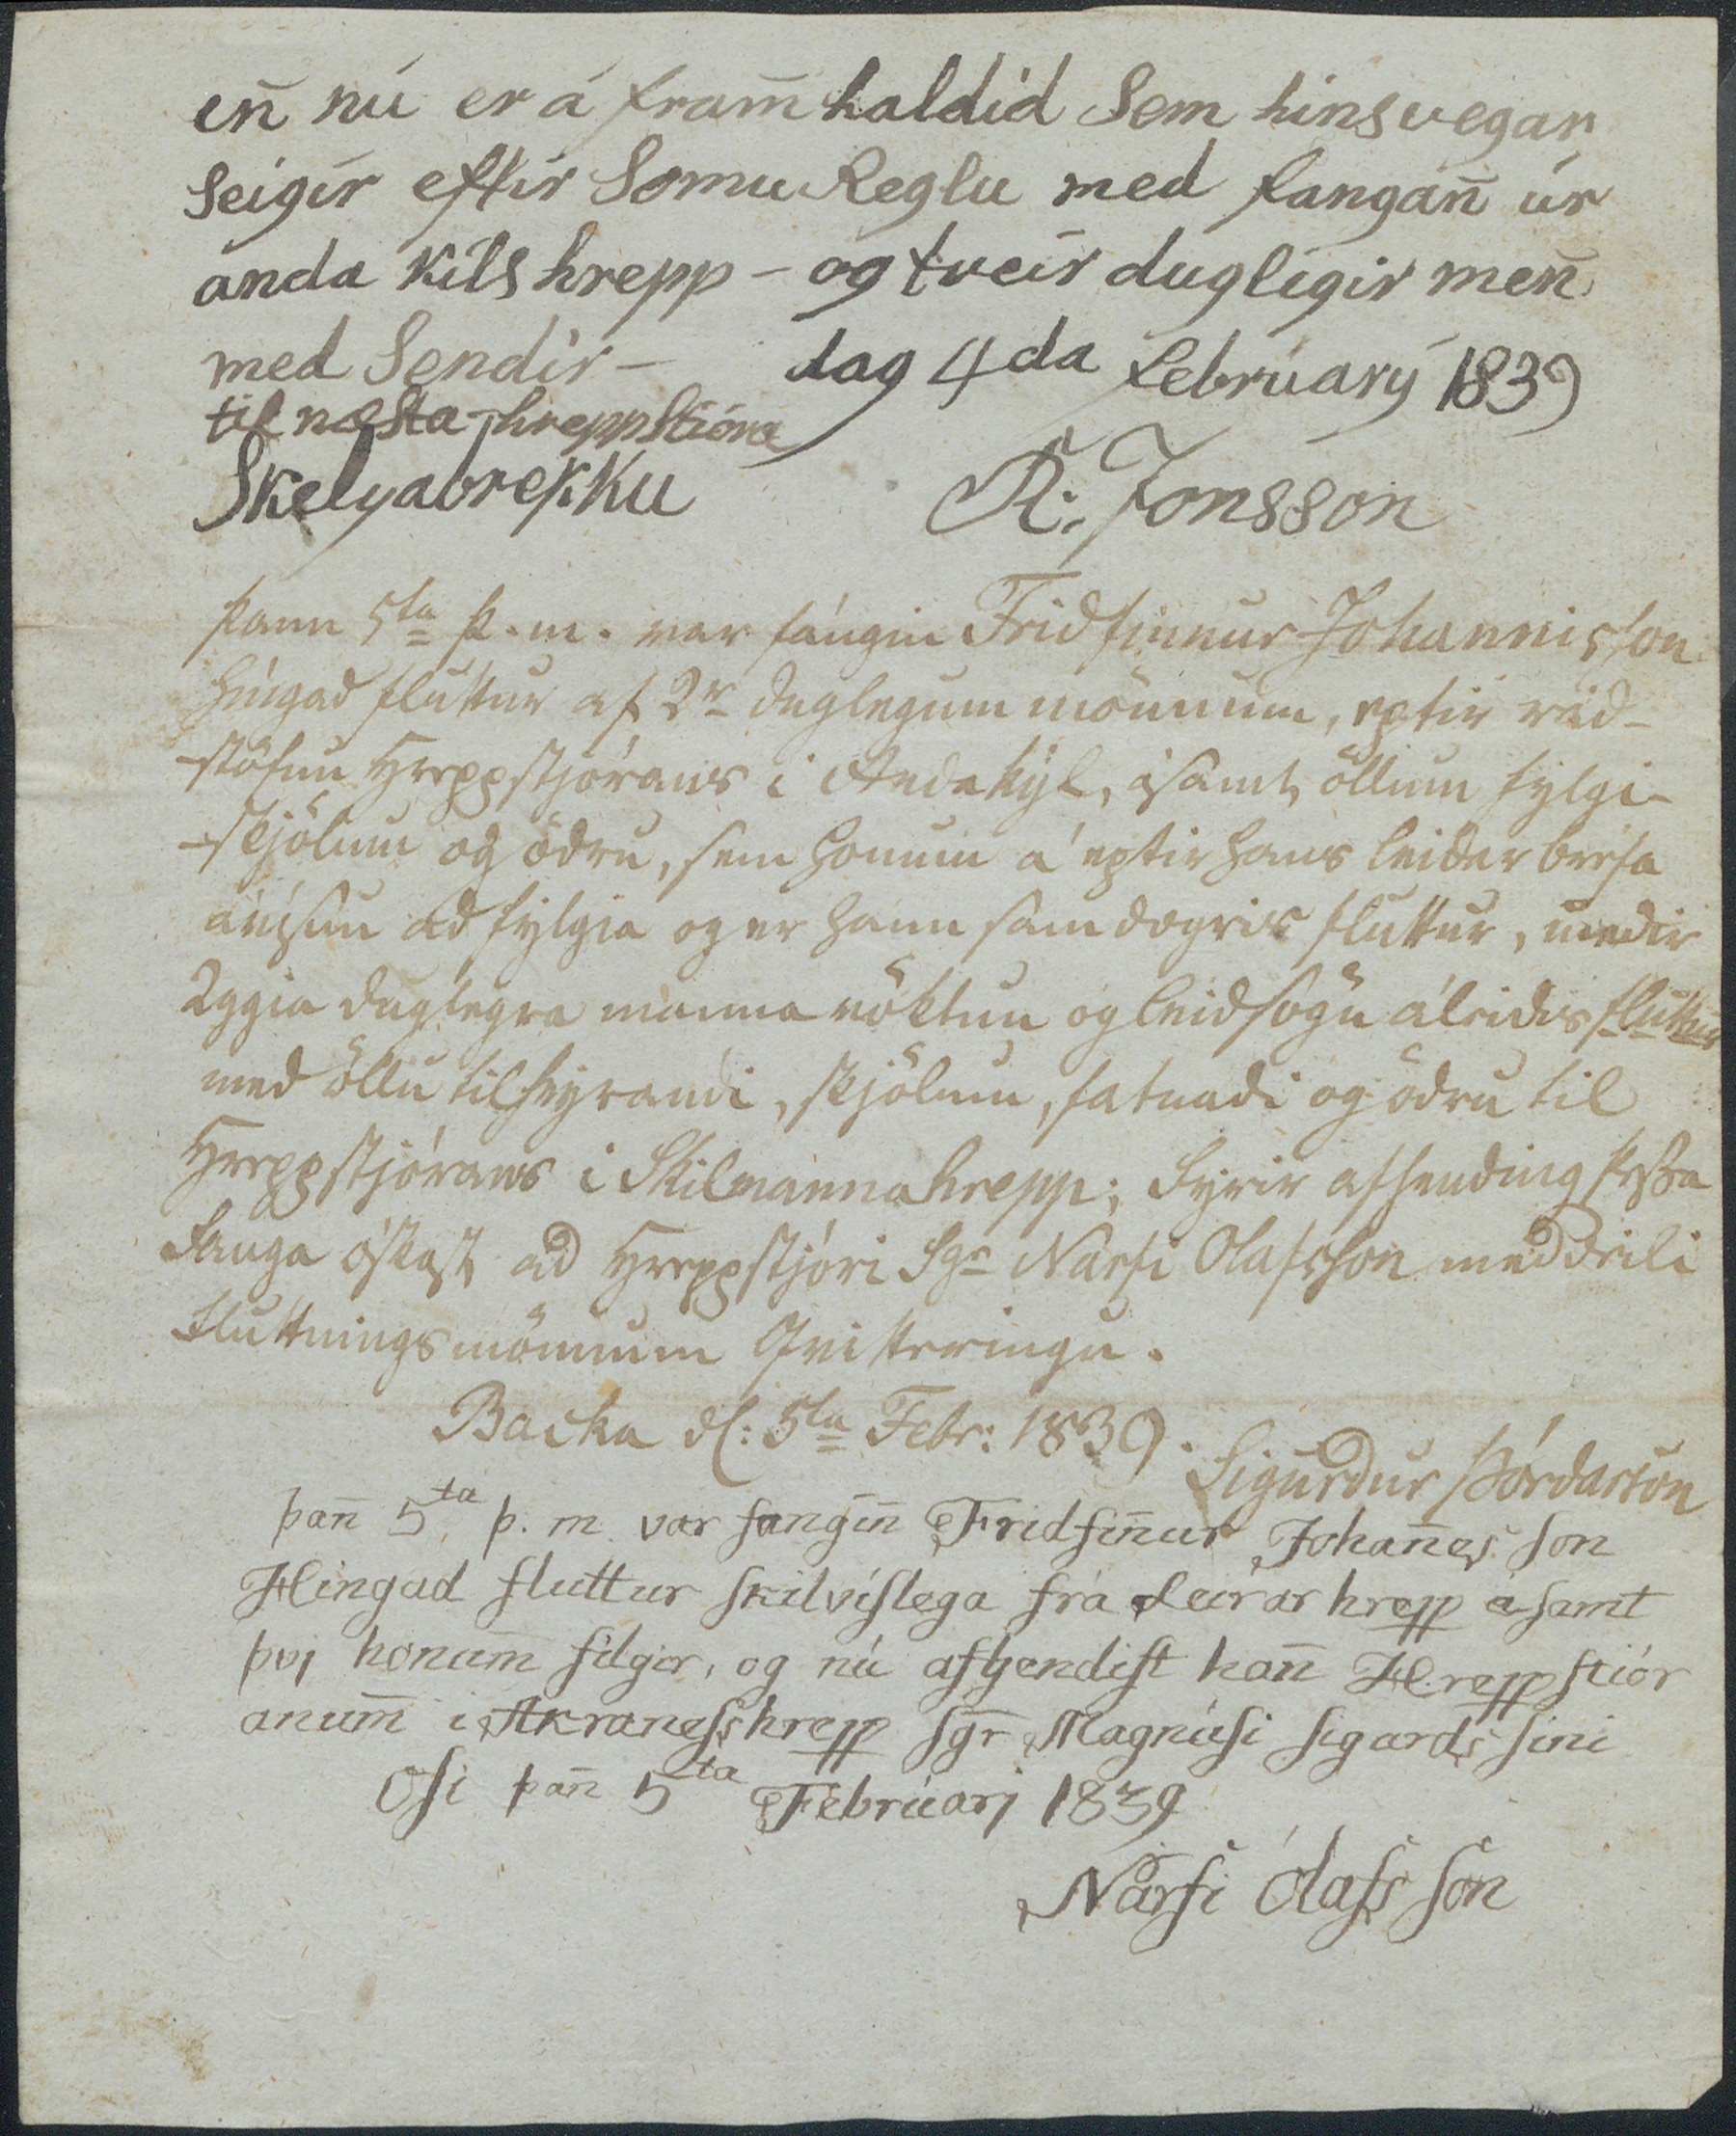 en̄ nú er á fram̄haldid Sem hinsvegar
Seigir eftir Somu Reglu med fangan̄ úr
anda kíls hrepp - og tveir dugligir men̄
med Sendir - dag 4da februarÿ 1839
til næsta hreppstióra
Skelyabrekku R. Jonsson
þann 5ta þ. m. var fángin Fridfinnur Johannisson
hingad fluttur af 2r duglegum mönnum, eptir rád-
-stöfun Hreppstjórans i Andakýl, ásamt öllum fylgi-
-skjölum og ödru, sem honum á eptir hans leidar brefa
ávísun ad fylgia og er hann samdægris fluttur, undir
2ggia duglegra manna vöktun og leidsögn áleidis fluttur
med öllu tilheyrandi, skjölum, fatnadi og ödru til
Hreppstjórans i Skilmannahrepp; Fyrir afhending þessa
Fanga óskast ad Hreppstjóri Sgr Narfi Olafsson meddeili
Fluttningsmönnum Qvitteringu.
Backa d: 5ta Febr: 1839. Sigurdur Þórdarson
þan̄ 5ta þ. m var fangin̄ Fridfin̄ur Johan̄es son
Hingad fluttur skilvíslega frá Leirar hrepp ásamt
þvj honum̄ filgir, og nú afhendist han̄ Hreppstiór
anum̄ i Akranesshrepp sgr Magnúsi sigurdssini
Osi þan̄ 5ta Februarj 1839
Narfi Ólafs son